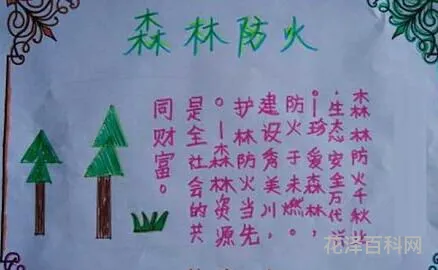 森林防火
森林防火千秋
，生态安全万代
。—珍爱森林，
防火于未燃。
建设秀美川，
护林防火当先
。—森林资源
是全社会的共
同财富。
花泽百科网